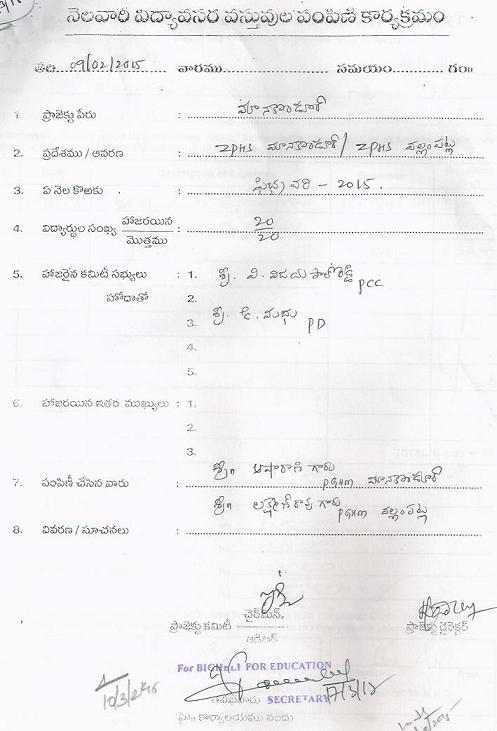 నెలవారీ విద్యావసర వస్తువుల పంపిణీ కార్యక్రమం
తేది 09/02/2015 వారము.................. సమయం.................. గం॥
1. ప్రాజెక్టు పేరు : మానకొండూర్
2. ప్రదేశము / ఆవరణ : ZPHS మానకొండూర్ / ZPHS
3. ఏ నెల కొఱకు : ఫిబ్రవరి - 2015.
4. విద్యార్థుల సంఖ్య హాజరయిన / మొత్తము : 20/20
5. హాజరైన కమిటీ సభ్యులు : 1. శ్రీ. వి. PCC
హోదాతో 2.
3. శ్రీ. మధు PD
4.
5.
6. హాజరయిన ఇతర ముఖ్యులు : 1.
2.
3.
7. పంపిణీ చేసిన వారు : గారు PGHM మానకొండూర్
గారు PGHM
8. వివరణ / సూచనలు :
ప్రాజెక్టు కమిటీ చైర్‌మెన్, ప్రాజెక్టు డైరెక్టర్
ఆడిటర్
For BIG HELP FOR EDUCATION
SECRETARY 17/3/15
10/3/2015
ప్రధాన కార్యాలయము నందు